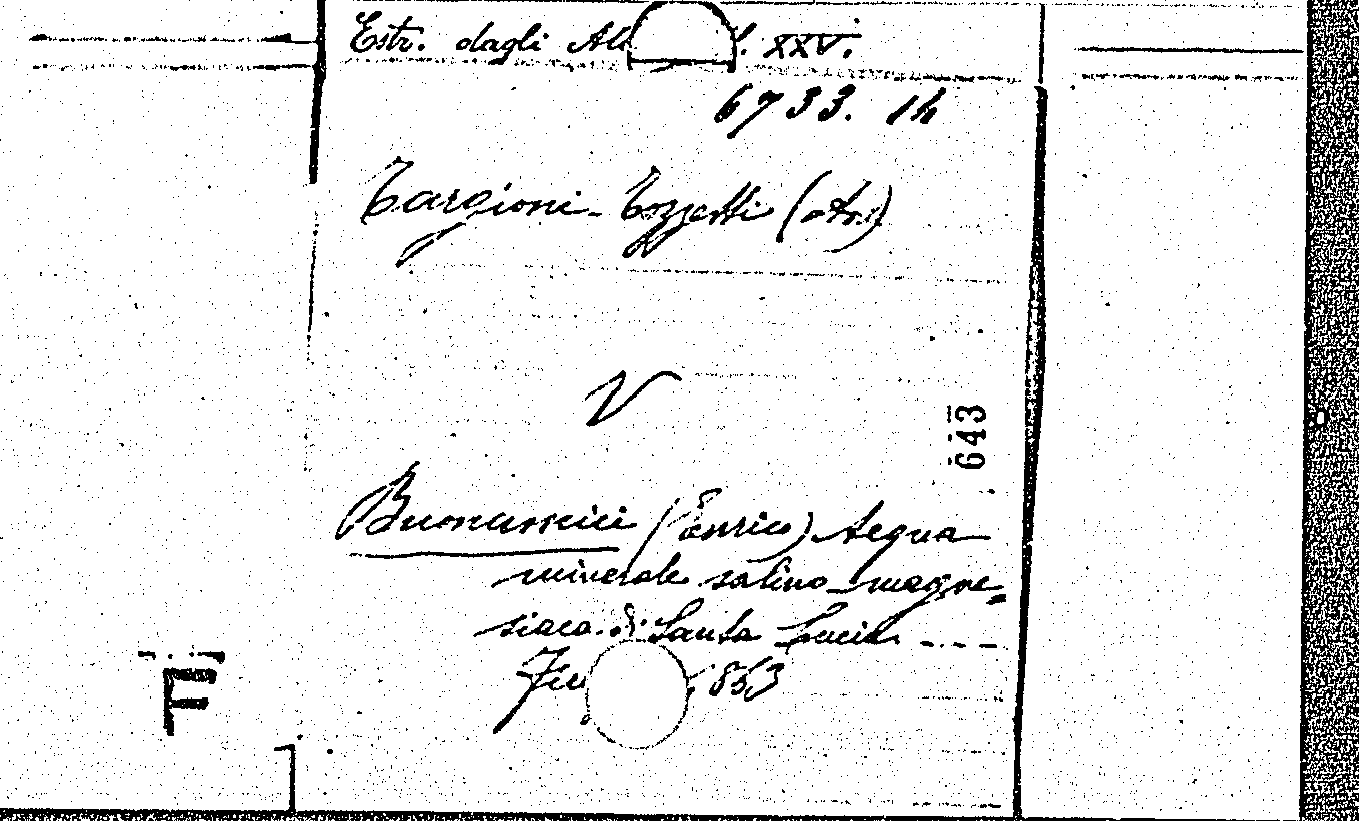 Estr. dagli XXV.
6733. 14
Targioni-Tozzetti (Ant.)
V
643
Buonamici (Enrico) Acqua
minerale salino-magne=
siaca di Santa Lucia ---
1863
F